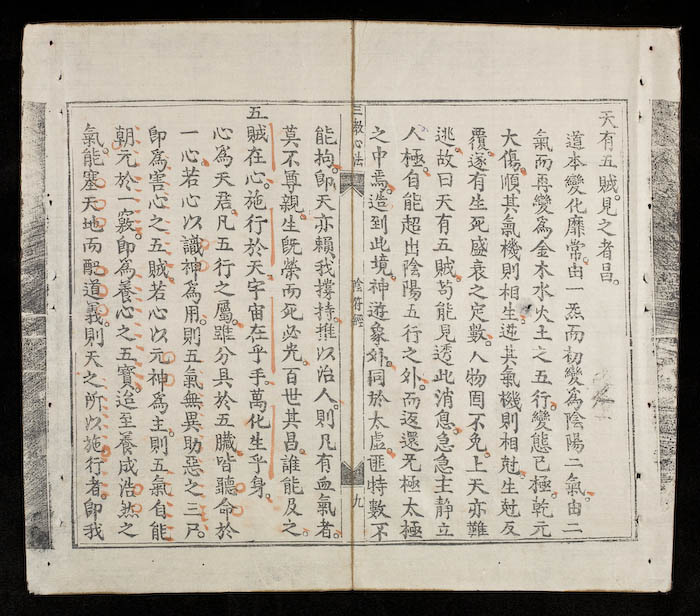 天有五賊。見之者昌。
道本變化靡常。由一炁而初變為陰陽二氣。由二
氣而再變為金木水火土之五行。變態已極乾元
大傷順其氣機則相生。逆其氣機則相尅。生尅反
覆。遂有生死盛衰之定數。人物固不免。上天亦難
逃。故曰天有五賊。苟能見透此消息。急急主靜立
人極。自能超出陰陽五行之外。而返還无極太極
之中焉。造到此境。神遊象外。同於太虛。匪特數不
三教心法 陰符經 九
能拘。即天亦賴我撐持。推以治人。則凡有血氣者。
莫不尊親。生既榮而死必光。百世其昌。誰能及之
五賊在心。施行於天。宇宙在乎手。萬化生乎身。
心為天君。凡五行之屬。雖分具於五臟。皆聽命於
一心。若心以識神為用。則五氣無異助惡之三尸。
即為害心之五賊。若心以元神為主。則五氣自能
朝元於一竅。即為養心之五寶。迨至養成浩然之
氣。能塞天地而配道義。則天之所以施行者。即我